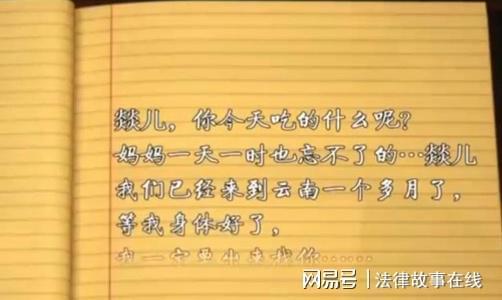 燚儿，你今天吃的什么呢？
妈妈一天一时也忘不了的…燚儿
我们已经来到云南一个多月了，
等我身体好了，
我一定要出来找你……
网易号 | 法律故事在线